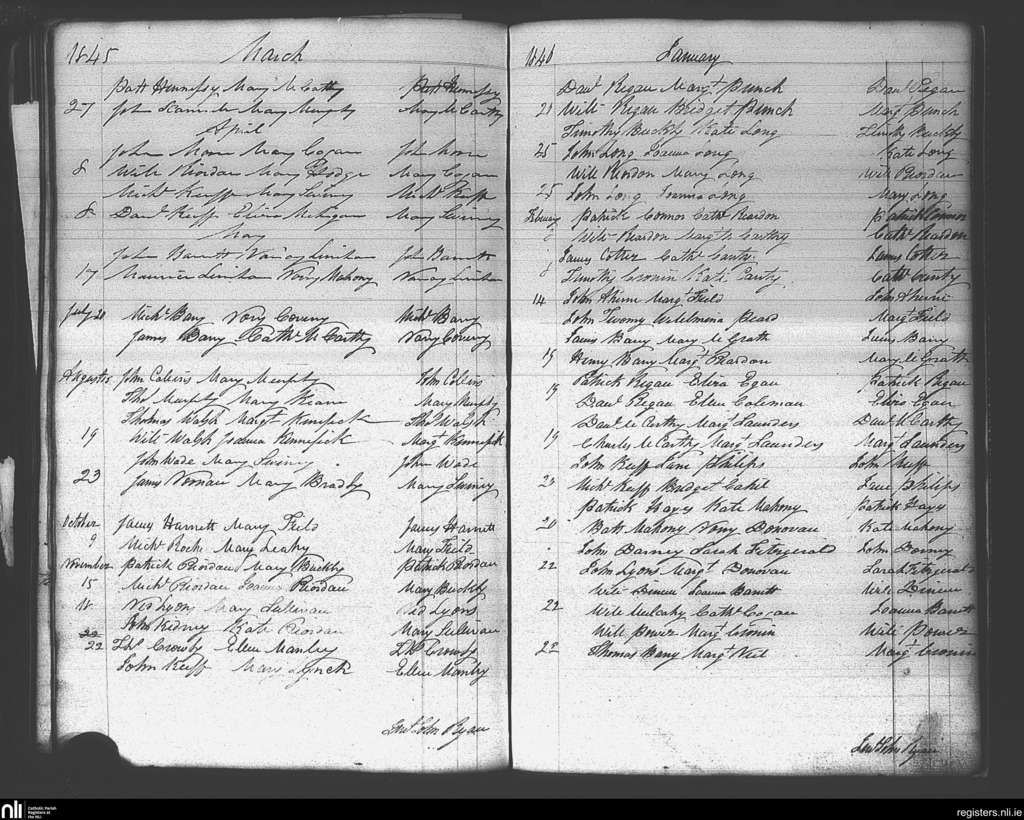 1845 March
Patt Hennessy Mary McCarthy Patt Hennessy
27 John Mary Murphy Mary McCarthy
April
John Moore Mary Cogan John Moore
8 Will Riordan Mary Hodge Mary Cogan
Michl Keeffe Mary Swiny Michl Keeffe
8 Danl Keeffe Eliza Mehigan Mary Swiney
May
John Barrett Nancy Linihan John Barrett
17 Maurice Linihan Nory Mahony Nancy Linihan
July 21 Michl Barry Nory Coveny Michl Barry
James Barry Cathe McCarthy Nory Coveny
August 15 John Collins Mary Murphy John Collins
Thos Murphy Mary Keane Mary Murphy
Thomas Walsh Margt Kennifick Thos Walsh
19 Will Walsh Joanna Kennifick Margt Kennifick
John Wade Mary Swiny John Wade
23 James Noonan Mary Bradly Mary Swiney
October James Harnett Mary Field James Harnett
9 Michl Roche Mary Leahy Mary Field
November Patrick Riordan Mary Buckly Patrick Riordan
15 Michl Riordan Joanna Riordan Mary Buckly
18 Ned Lyons Mary Sullivan Ned Lyons
John Kidney Kate Riordan Mary Sullivan
22
22 Ths Crowly Ellen Manly Ths Crowly
John Keeff Mary Lynch Ellen Manly
Revd John Ryan
1846 January
Danl Regan Margt Punch Danl Regan
21 Will Regan Bridget Punch Marg Punch
Timothy Buckly Kate Long Timothy Buckly
25 John Long Joanna Long Kate Long
Will Riordon Mary Long Will Riordan
25 John Long Joanna Long Mary Long
February Patrick Connor Cathe Reardon Patrick Connor
6 Will Reardon Margt McCarthy Cathe Reardon
James Cotter Cathe Canty James Cotter
8 Timothy Cronin Kate Canty Cathe Canty
14 John Ahern Margt Field John Ahern
John Twomy Wilelmina Beard Margt Field
James Barry Mary McGrath James Barry
15 Henry Barry Margt Reardon Mary McGrath
Patrick Regan Eliza Egan Patrick Regan
19 Danl Regan Ellen Coleman Eliza Egan
Danl McCarthy Margt Saunders Danl McCarthy
19 Charles McCarthy Margt Saunders Margt Saunders
John Keeff Jane Philips John Keeff
23 Michl Keeff Bridget Cahil Jane Philips
Patrick Hayes Kate Mahony Patrick Hayes
20 Batt Mahony Nory Donovan Kate Mahony
John Barney Sarah Fitzgerald John Barney
22 John Lyons Margt Donovan Sarah Fitzgerald
Will Bineen Joanna Barrett Will Bineen
22 Will Mulcahy Cathe Cogan Joanna Barrett
Will Power Margt Cronin Will Power
22 Thomas Barry Margt Neil Margt Cronin
Revd John Ryan
nli Catholic Parish
Registers at
the NLI
registers.nli.ie